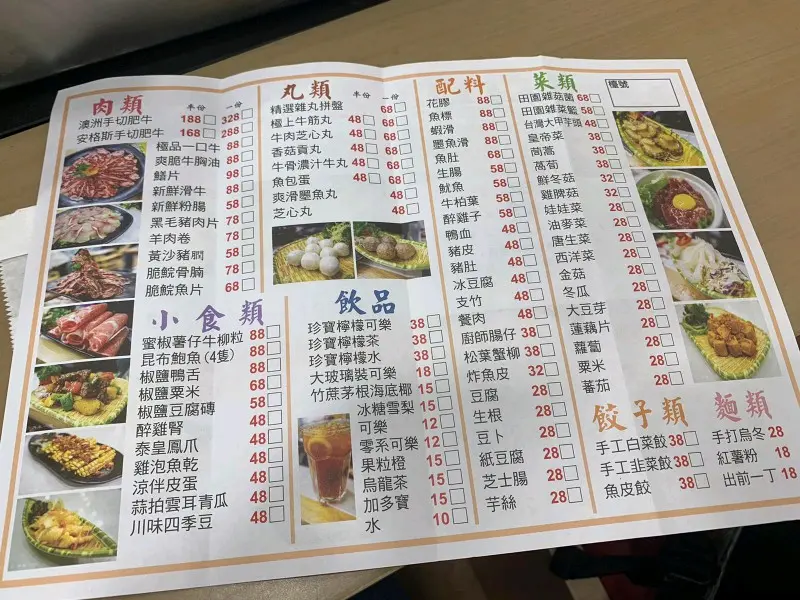 肉類 半份 一份
澳洲手切肥牛 188 328
安格斯手切肥牛 168 288
極品一口牛 88
爽脆牛胸油 88
鱔片 98
新鮮滑牛 88
新鮮粉腸 58
黑毛豬肉片 78
羊肉卷 78
黃沙豬膶 58
脆鯇骨腩 78
脆鯇魚片 68
小食類
蜜椒薯仔牛柳粒 88
昆布鮑魚(4隻) 88
椒鹽鴨舌 88
椒鹽粟米 68
椒鹽豆腐磚 58
醉雞腎 48
泰皇鳳爪 48
雞泡魚乾 48
涼伴皮蛋 48
蒜拍雲耳青瓜 48
川味四季豆 48
丸類 半份 一份
精選雜丸拼盤 68
極上牛筋丸 48 68
牛肉芝心丸 48 68
香菇貢丸 48 68
牛骨濃汁牛丸 48 68
魚包蛋 48 68
爽滑墨魚丸 48
芝心丸 48
飲品
珍寶檸檬可樂 38
珍寶檸檬茶 38
珍寶檸檬水 38
大玻璃裝可樂 18
竹蔗茅根海底椰 15
冰糖雪梨 15
可樂 12
零系可樂 12
果粒橙 15
烏龍茶 15
加多寶 15
水 10
配料
花膠 88
魚標 88
蝦滑 88
墨魚滑 88
魚肚 58
生腸 58
魷魚 58
牛柏葉 58
醉雞子 58
鴨血 48
豬皮 48
豬肚 48
冰豆腐 48
支竹 48
餐肉 48
廚師腸仔 38
松葉蟹柳 38
炸魚皮 32
豆腐 28
生根 28
豆卜 28
紙豆腐 28
芝士腸 28
芋絲 28
菜類
田園雜菇菌 68
田園雜菜籃 58
台灣大甲芋頭 48
皇帝菜 38
茼蒿 38
萵筍 38
鮮冬菇 32
雞脾菇 32
娃娃菜 28
油麥菜 28
唐生菜 28
西洋菜 28
金菇 28
冬瓜 28
大豆芽 28
蓮藕片 28
蘿蔔 28
粟米 28
蕃茄 28
檯號
餃子類
手工白菜餃 38
手工韭菜餃 38
魚皮餃 38
麵類
手打烏冬 28
紅薯粉 18
出前一丁 18